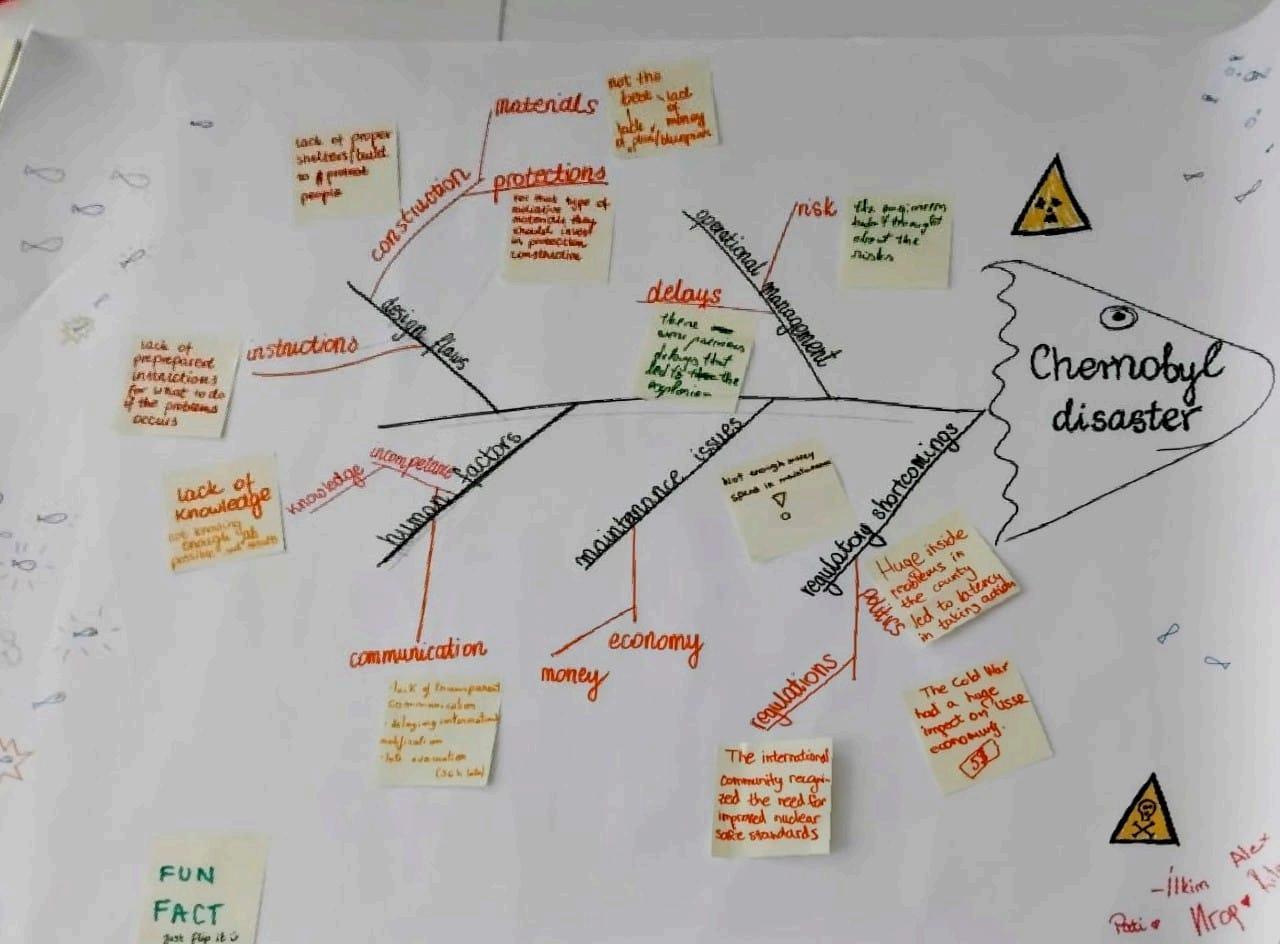 materials
not the
best
lack
of
money
lack
of plan/blueprint
lack of proper
shelters/build
to protect
people
construction
protections
for that type of
radiative
materials they
should invest
in protection
construction
operational management
risk
the engineers
hadn't thought
about the
risks
delays
there
were
delays that
led to the
explosion
design flaws
instructions
lack of
prepreparent
instructions
for what to do
if the problems
occurs
Chernobyl
disaster
human factors
incompetance
knowledge
lack of
knowledge
not knowing
enough
possible
maintenance issues
Not enough money
spend in maintenance
regulatory shortcomings
Huge inside
problems in
the county
led to latency
in taking action
politics
communication
economy
money
regulations
lack of transparent
communication
delaying information
notification
late evacuation
(36h late)
The Cold War
had a huge
impact on USSR
economy.
5$
The international
community recogni-
zed the need for
improved nuclear
safe standards
FUN
FACT
just flip it
Alex
-İlkim
Pati